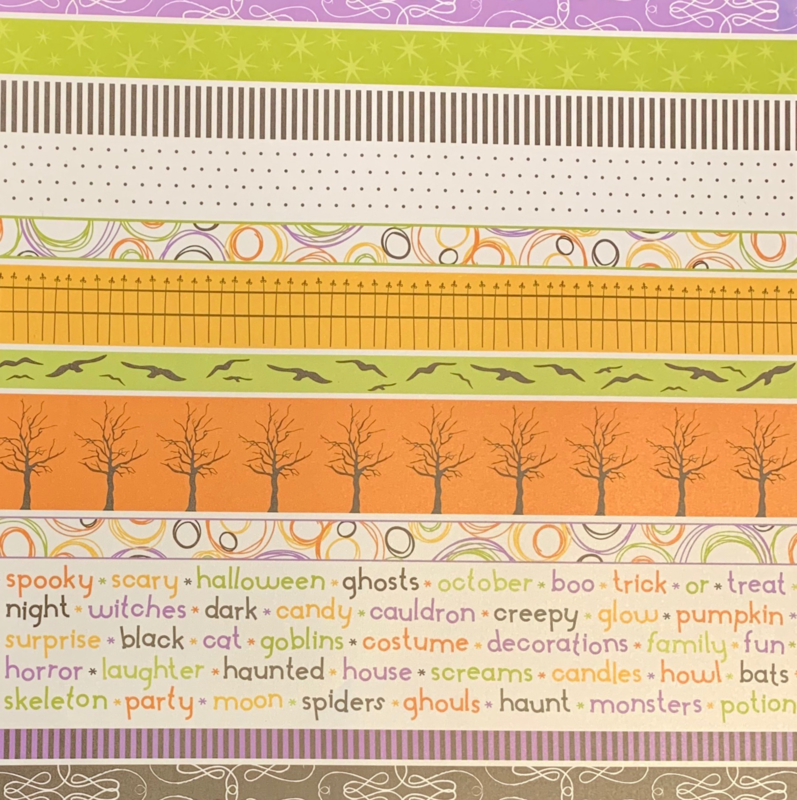 spooky * scary * halloween * ghosts * october * boo * trick * or * treat *
night * witches * dark * candy * cauldron * creepy * glow * pumpkin *
surprise * black * cat * goblins * costume * decorations * family * fun *
horror * laughter * haunted * house * screams * candles * howl * bats
skeleton * party * moon * spiders * ghouls * haunt * monsters * potion